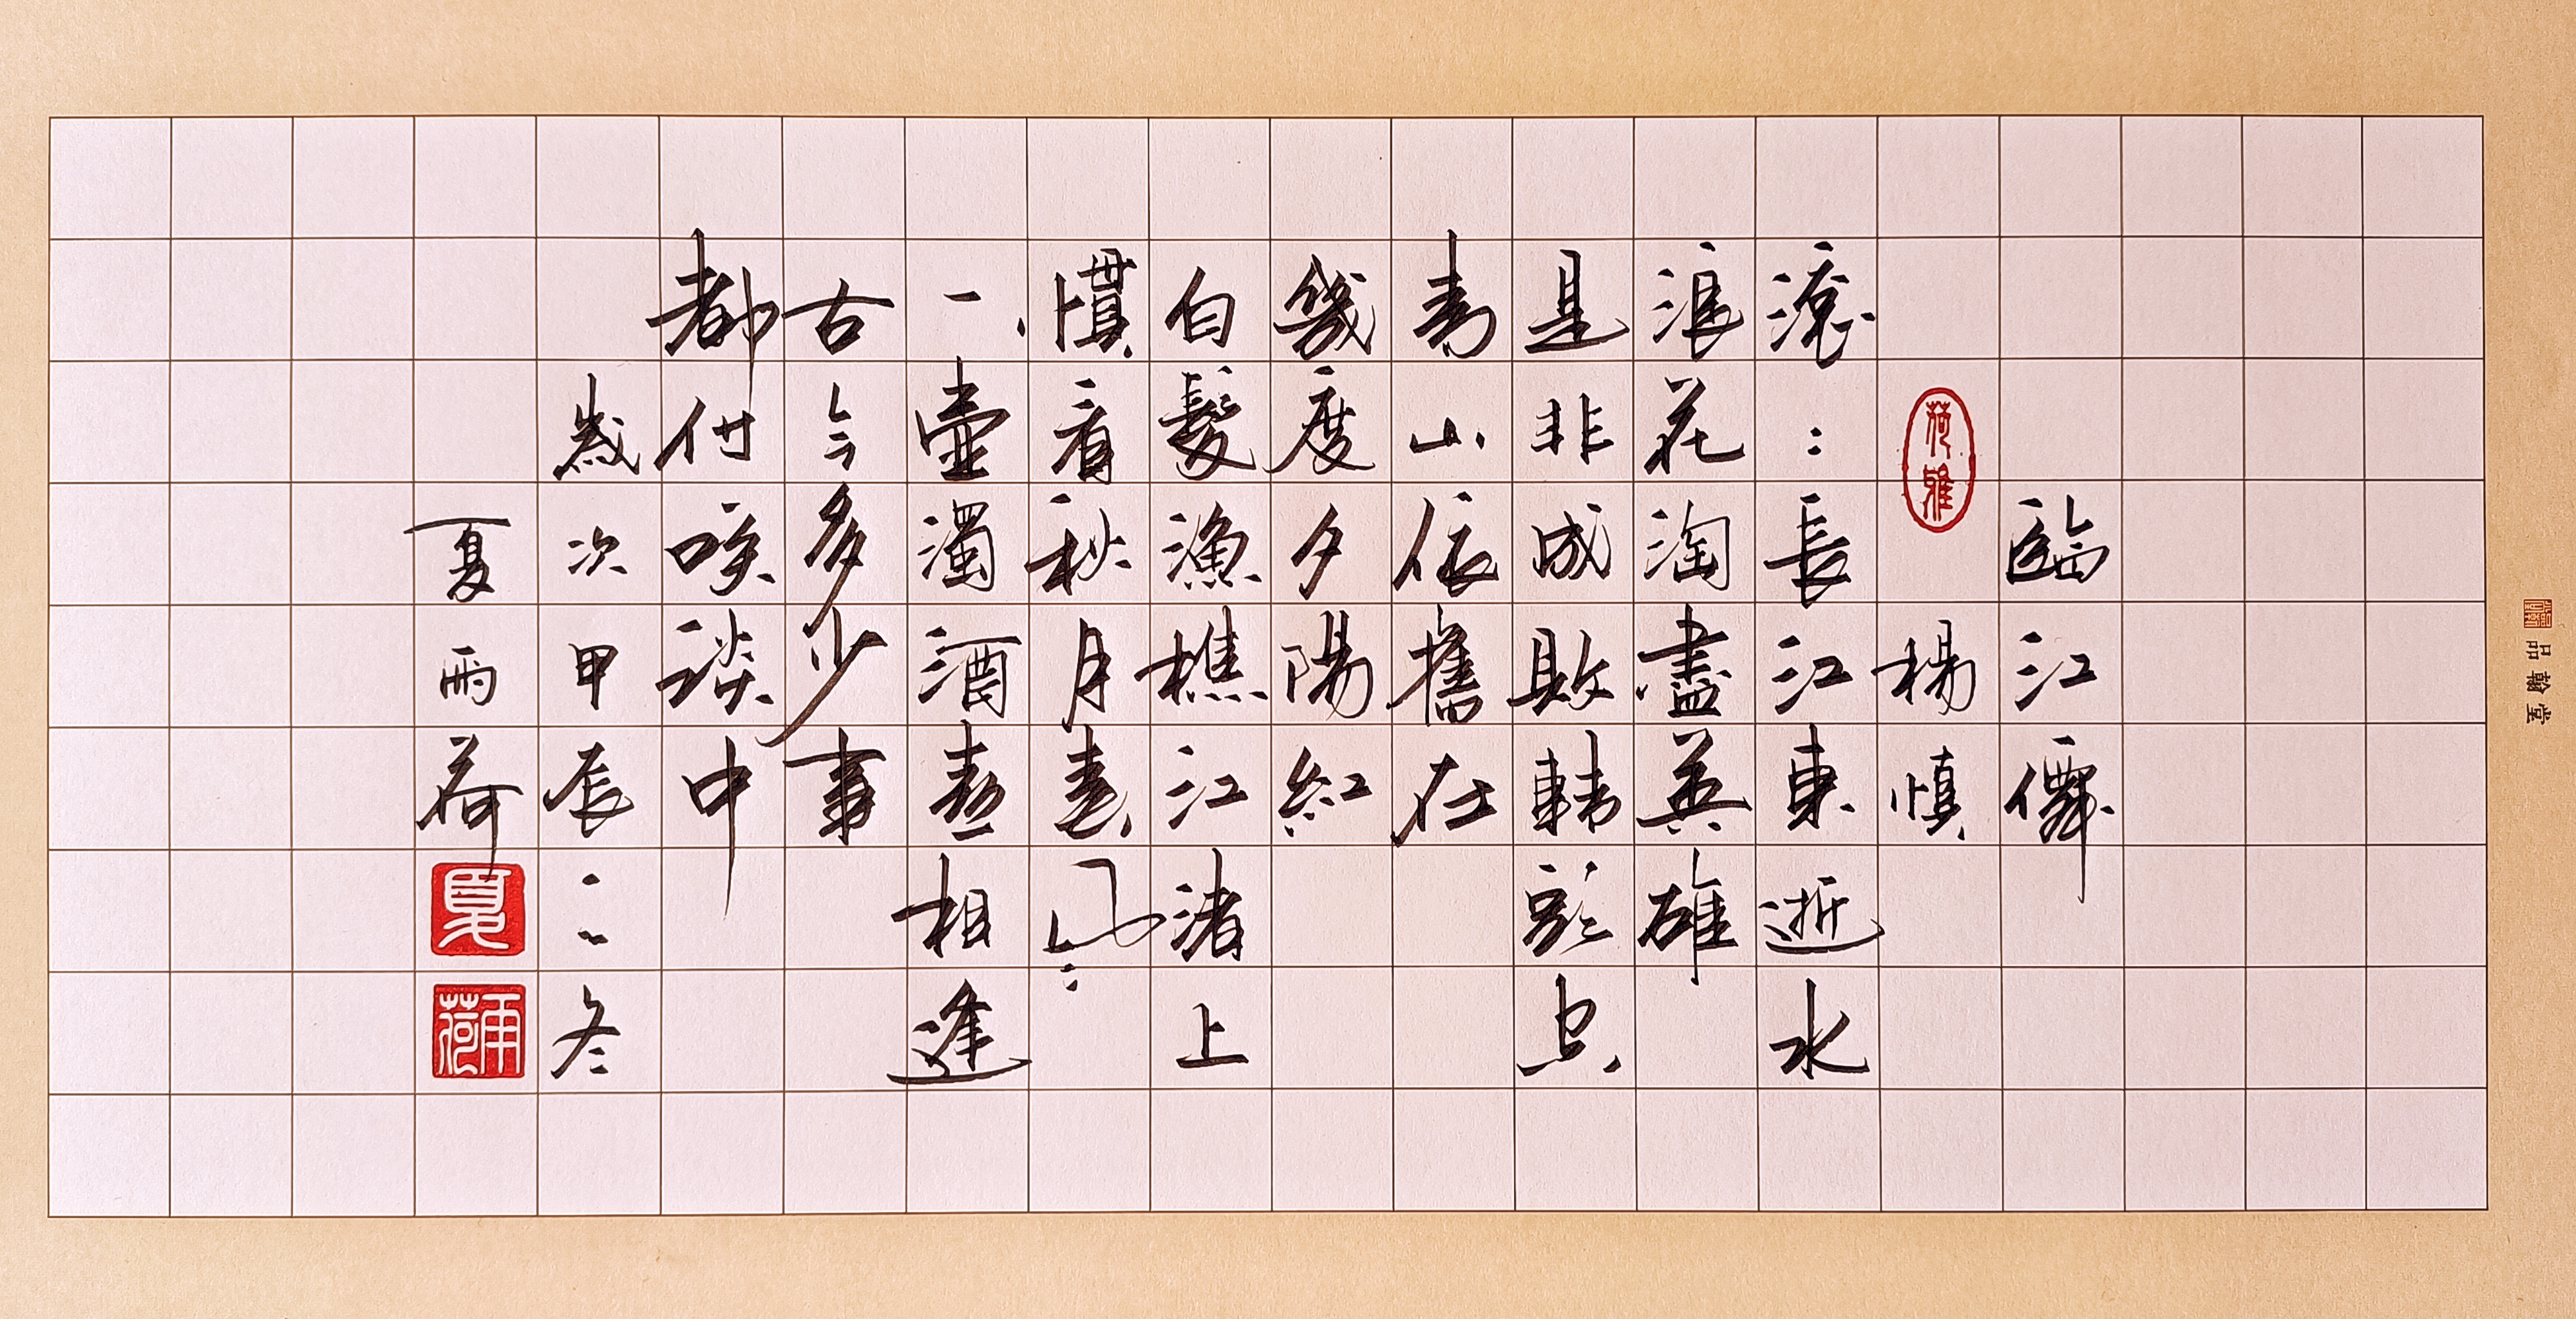 品翰堂
臨江僊
荷雅
楊慎
滾〻長江東逝水
浪花淘盡英雄
是非成敗轉頭空
青山依舊在
幾度夕陽紅
白髮漁樵江渚上
慣看秋月春風
一壺濁酒喜相逢
古今多少事
都付咲談中
歲次甲辰之冬
夏雨荷
夏
雨荷